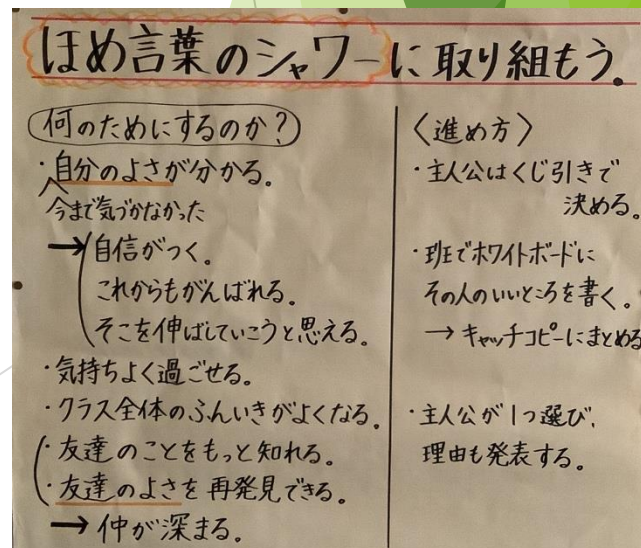 ほめ言葉のシャワーに取り組もう。
何のためにするのか？
・自分のよさが分かる。
今まで気づかなかった
→自信がつく。
これからもがんばれる。
そこを伸ばしていこうと思える。
・気持ちよく過ごせる。
・クラス全体のふんいきがよくなる。
・友達のことをもっと知れる。
・友達のよさを再発見できる。
→仲が深まる。
〈進め方〉
・主人公はくじ引きで
決める。
・班でホワイトボードに
その人のいいところを書く。
→キャッチコピーにまとめる
・主人公が1つ選び、
理由も発表する。